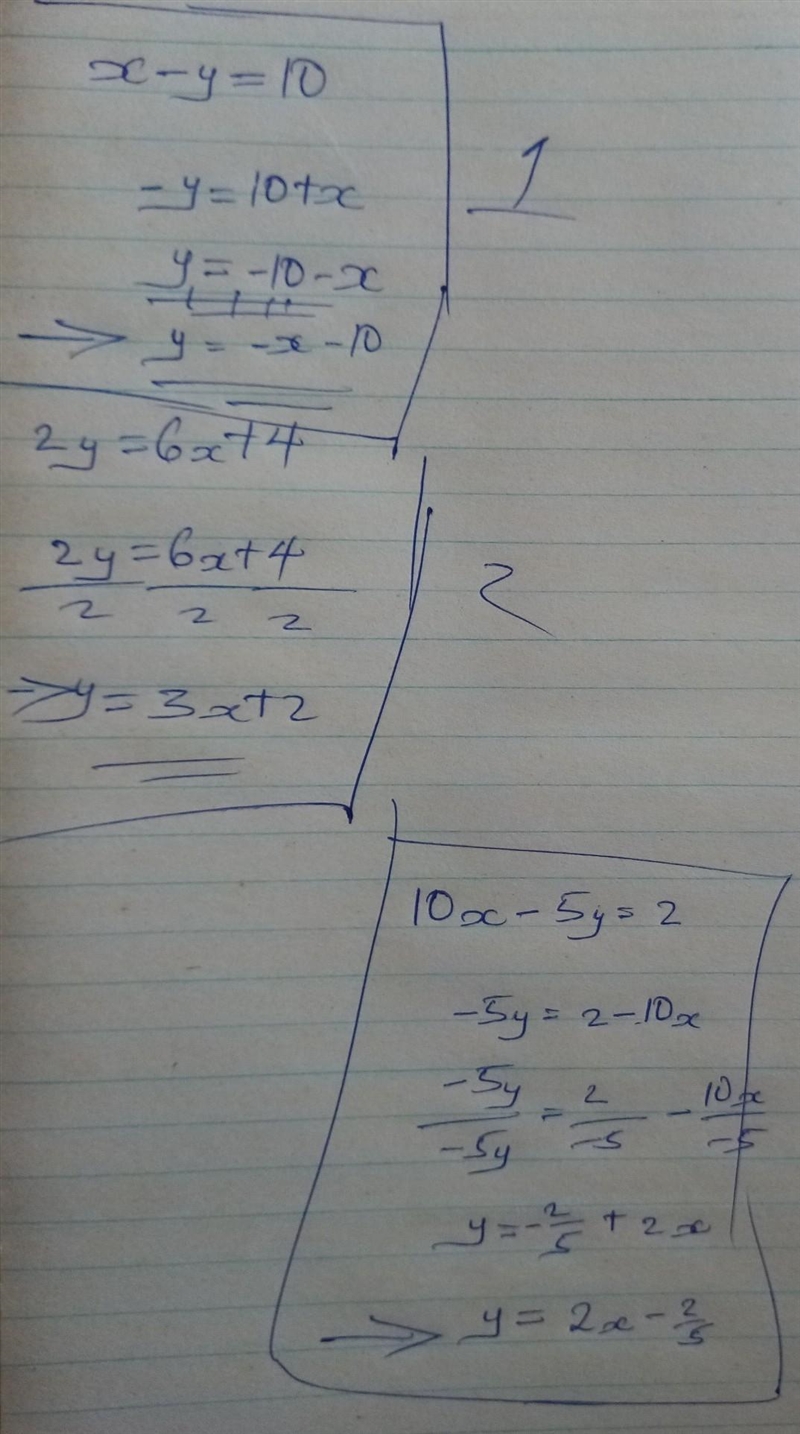 x - y = 10
1
-y = 10 + x
y = -10 - x
→ y = -x - 10
2y = 6x + 4
2y = 6x + 4
2 2 2
2
→ y = 3x + 2
10x - 5y = 2
-5y = 2 - 10x
-5y/-5y = 2/-5 - 10x/-5
y = -2/5 + 2x
→ y = 2x - 2/5